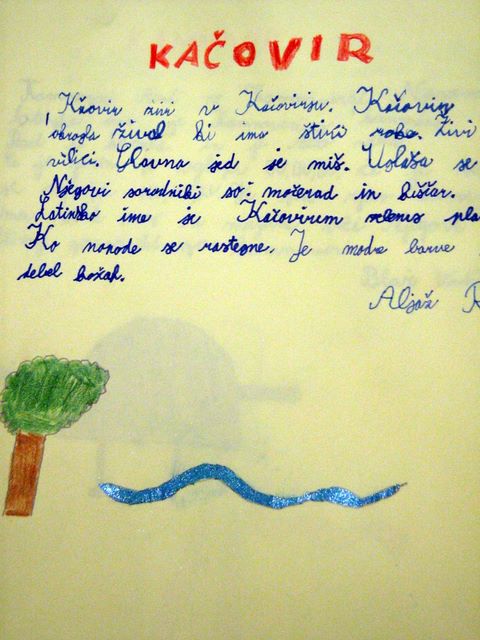 KAČOVIR
Kačovir živi v Kačovirju. Kačovir
okrogla žival ki ima štiri roba. Živi
vilici. Glavna jed je miš. Uglaša se
Njegovi sorodniki so: močerad in kuščar.
Latinsko ime je Kačovirum
Ko nanode se rastegne. Je modre barve
debel kožah.
Aljaž R